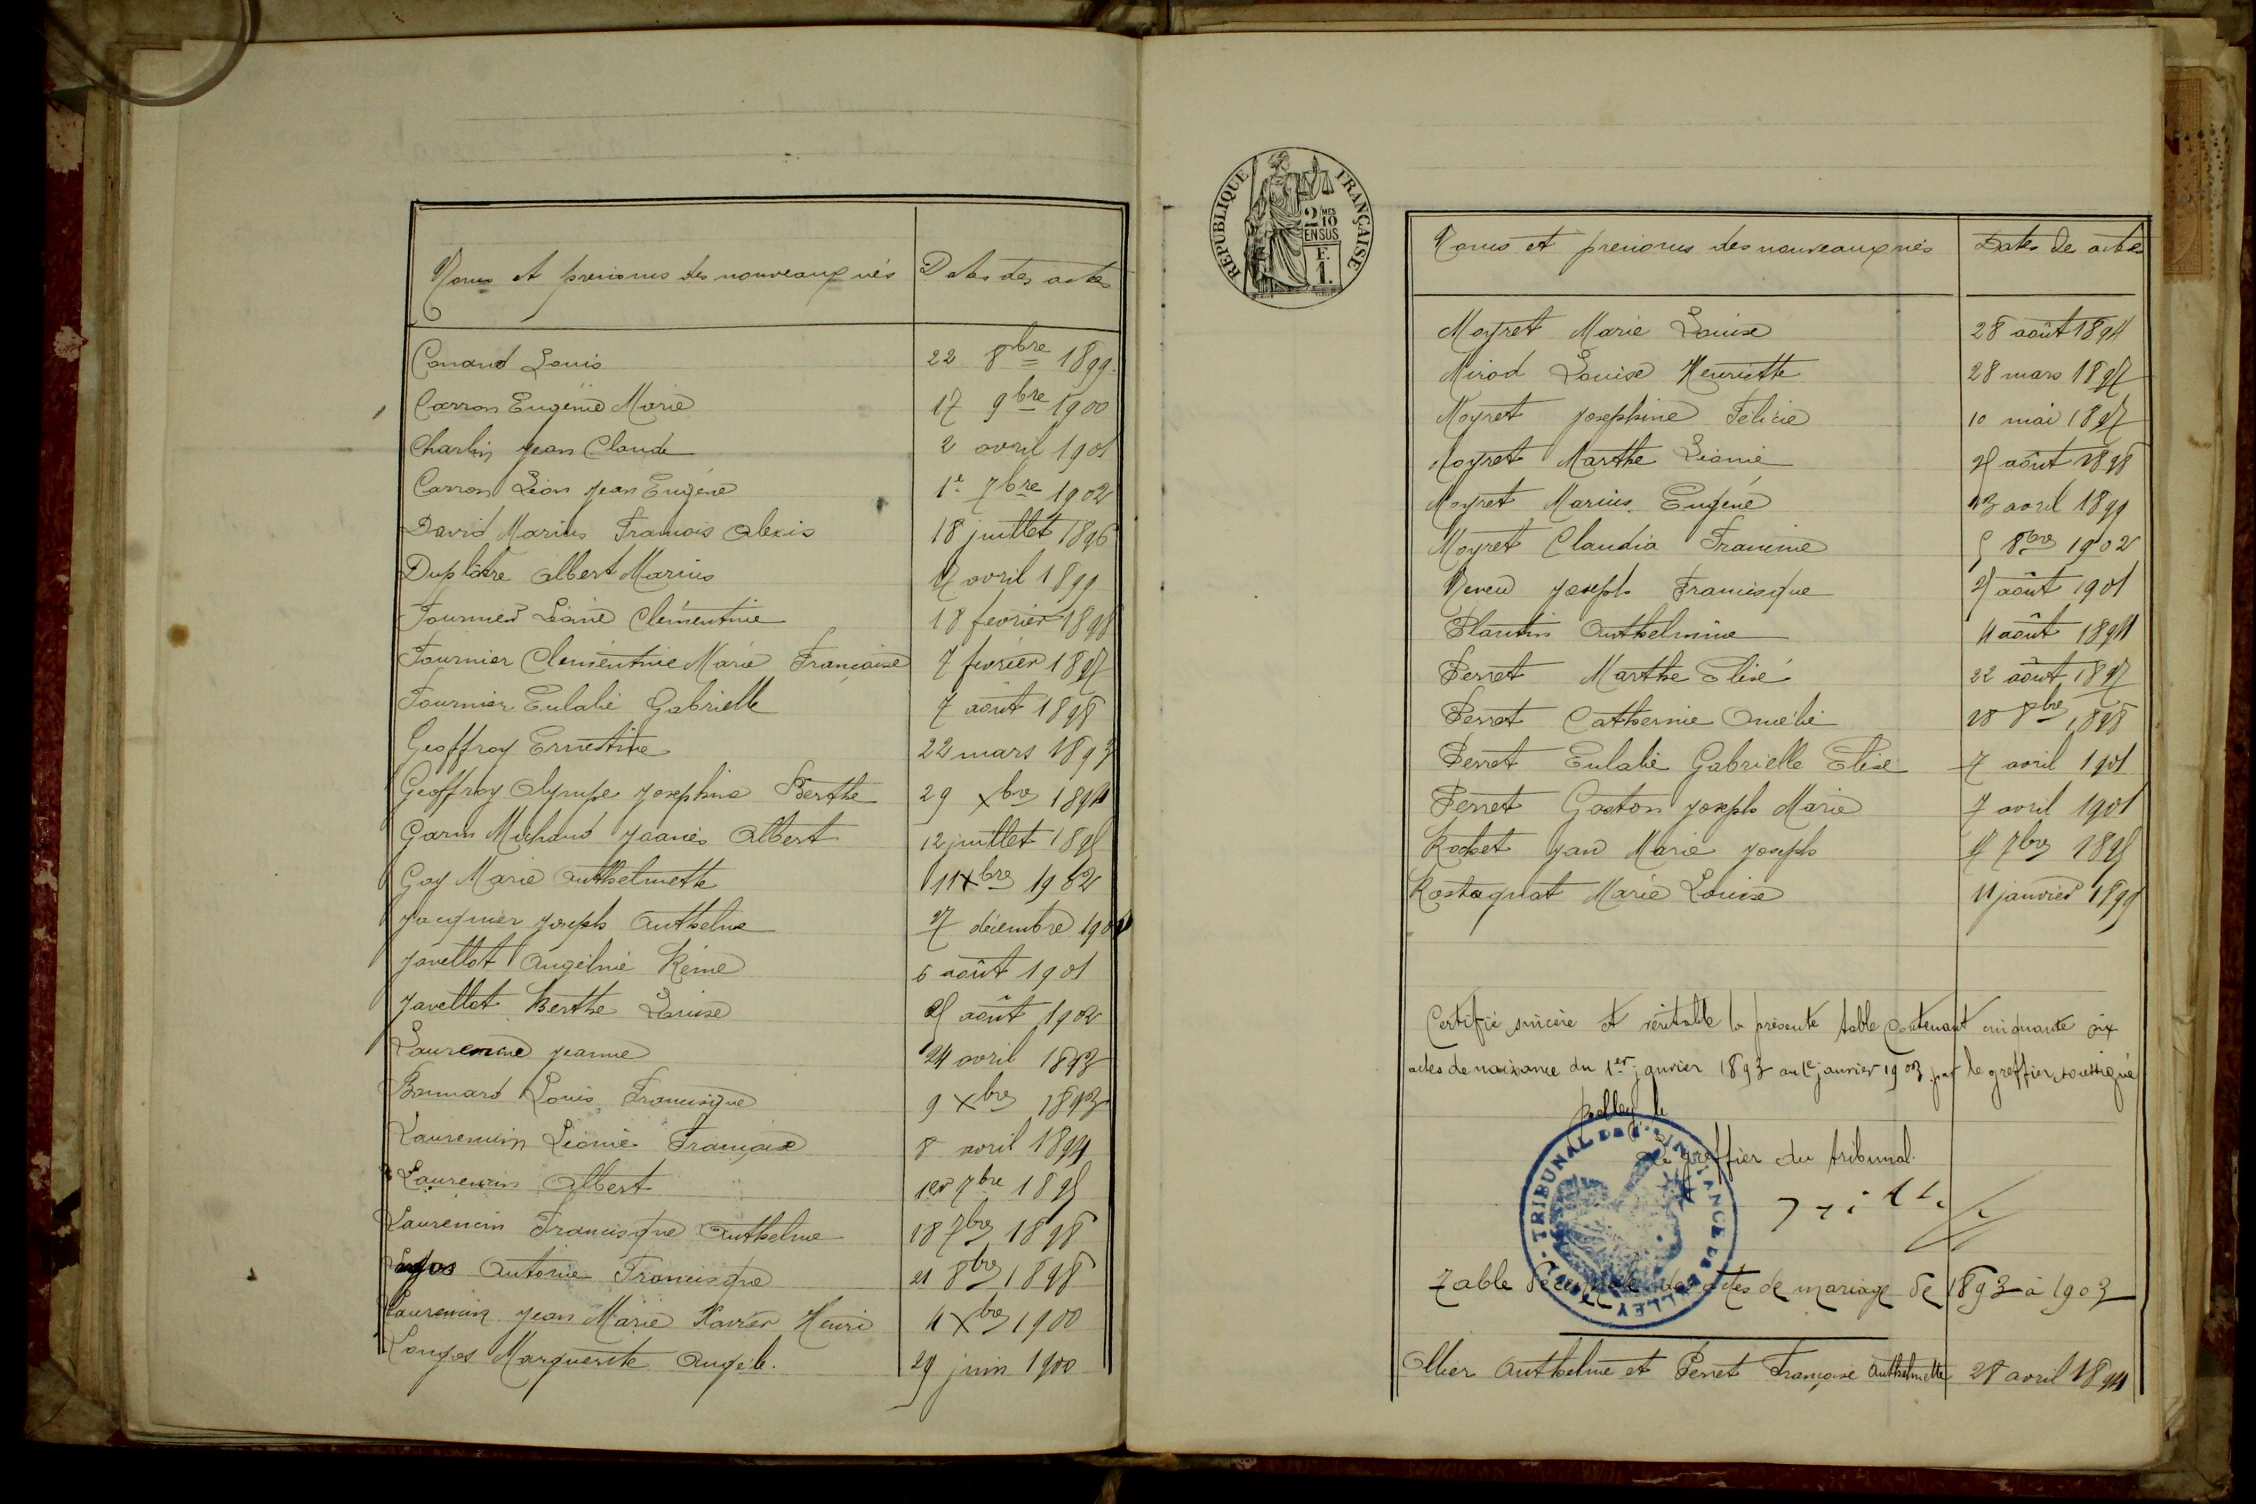 Noms et prénoms des nouveaux nés Dates des actes
Conand Louis 22 8bre 1899
Carron Eugénie Marie 17 9bre 1900
Charlin Jean Claude 2 avril 1901
Carron Léon Jean Eugène 1e 7bre 1902
David Marius François Alexis 18 juillet 1896
Duplâtre Albert Marius 17 avril 1899
Fournier Léonie Clémentine 18 fevrier 1898
Fournier Clémentine Marie Françoise 7 fevrier 1897
Fournier Eulalie Gabrielle 7 août 1898
Geoffroy Ernestine 22 mars 1893
Geoffroy Olympe Josephine Berthe 29 xbre 1894
Garin Michaud Joanès Albert 12 juillet 1895
Goy Marie Anthelmette 11 xbre 1902
Jacquier Joseph Anthelme 27 décembre
Javellot Angéline Reine 6 août 1901
Javellot Berthe Louise 25 août 1902
Jeanne 24 avril 1893
Bonnard Louis Francisque 9 xbre 1893
Laurencin Léonie Françoise 8 avril 1894
Laurencin Albert 1er 7bre 1895
Laurencin Francisque Anthelme 18 7bre 1898
Antoine Francisque 21 8bre 1898
Laurencin Jean Marie Xavier Henri 4 xbre 1900
Longos Marguerite Angèle. 29 juin 1900
REPUBLIQUE FRANÇAISE
2 MES 10 EN SUS
F. 1
Noms et prénoms des nouveaux nés Dates de actes
Moyret Marie Louise 28 août 1894
Mirod Louise Henriette 28 mars 1897
Moyret Josephine Félicie 10 mai 1897
Moyret Marthe Léonie 25 août 1898
Moyret Marius Eugène 23 avril 1899
Moyret Claudia Francine 5 8bre 1902
Neveu Joseph Francisque 25 août 1901
Plantin Anthelmine 4 août 1894
Perret Marthe Elise 22 août 1897
Perret Catherine Amélie 18 8bre 1898
Perret Eulalie Gabrielle Elise 7 avril 1901
Perret Gaston Joseph Marie 7 avril 1901
Rochet Jean Marie Joseph 17 7bre 1895
Rostagnat Marie Louise 11 janvier 1899
Certifié sincère et véritable la présente table contenant cinquante six
actes de naissance du 1er janvier 1893 au 1e janvier 1903 par le greffier soussigné
Belley le
Le greffier du tribunal.
TRIBUNAL DE 1ère INSTANCE DE BELLEY
Table décennale des actes de mariage de 1893 à 1903
Ollier Anthelme et Perret Françoise Anthelmette 28 avril 1894